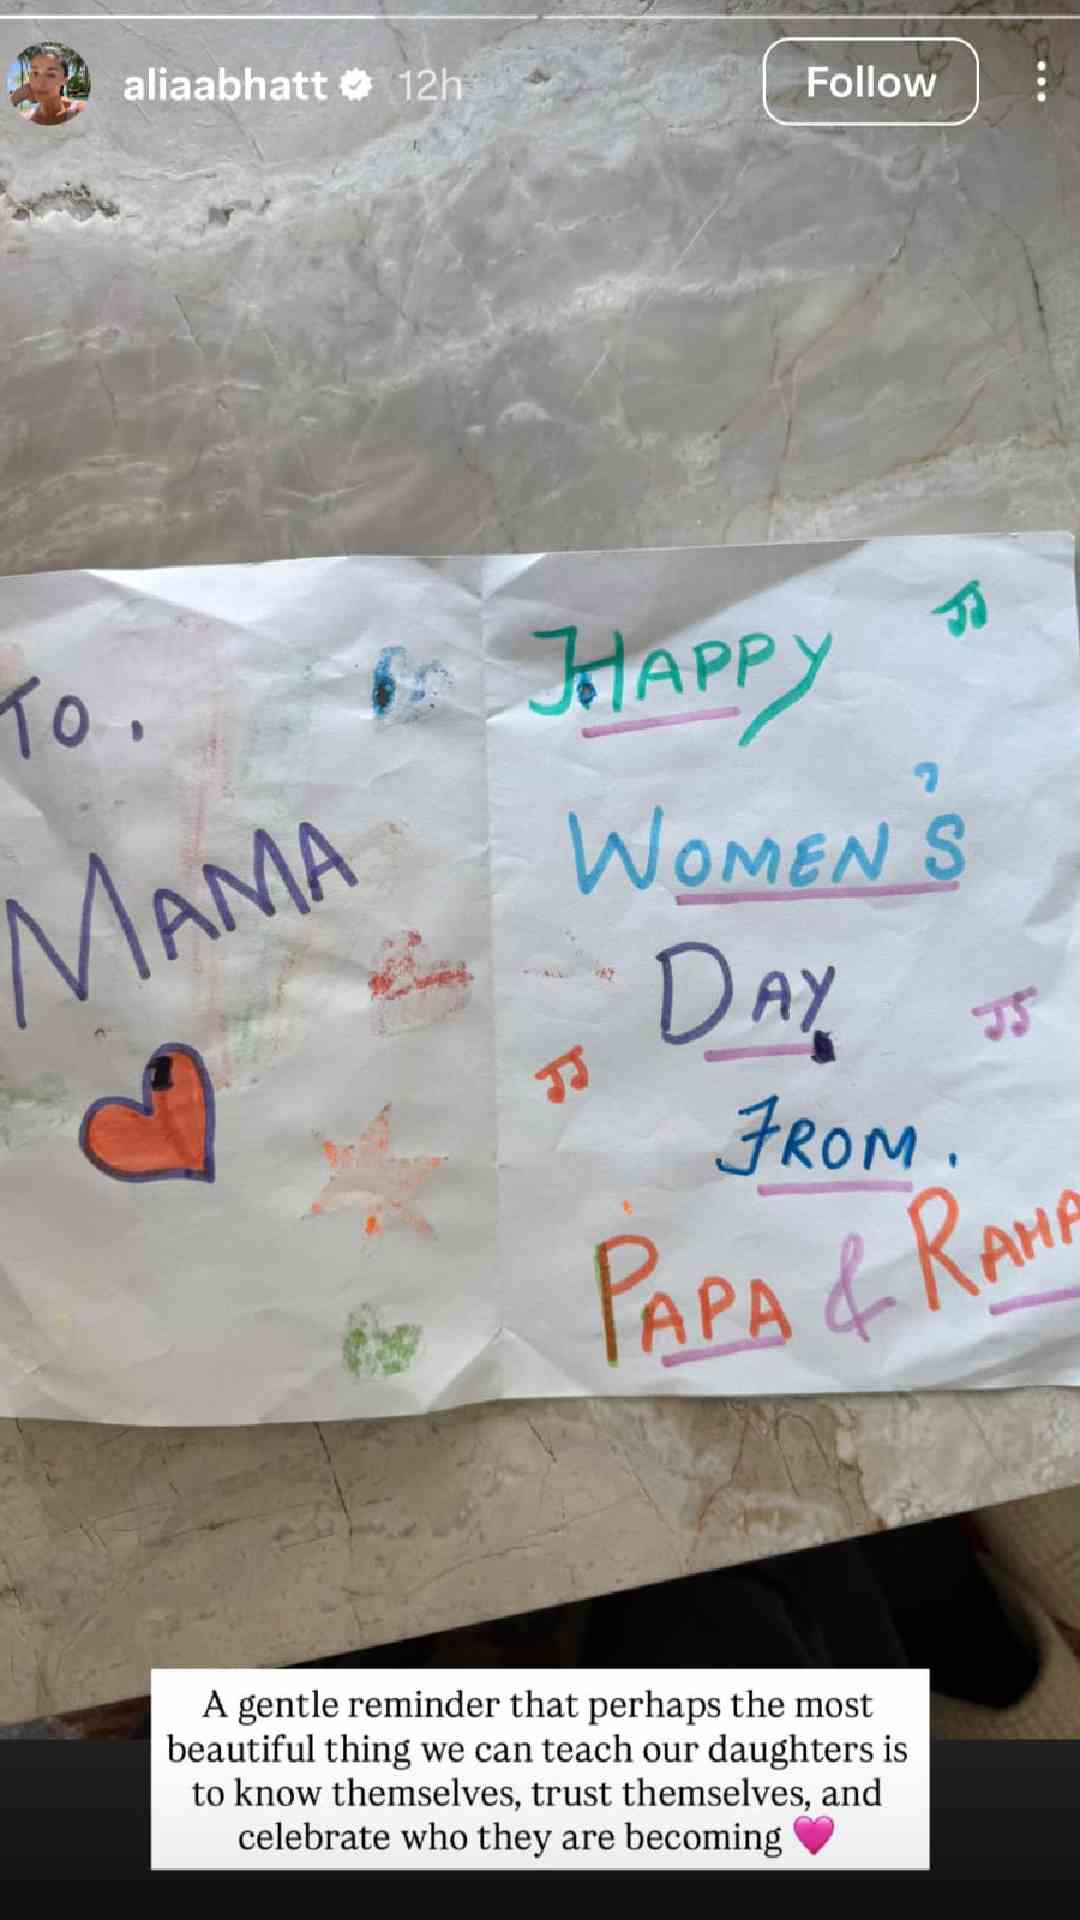 aliaabhatt 12h Follow
To,
MAMA
HAPPY
WOMEN'S
DAY
FROM.
PAPA & RAHA
A gentle reminder that perhaps the most
beautiful thing we can teach our daughters is
to know themselves, trust themselves, and
celebrate who they are becoming 🩷